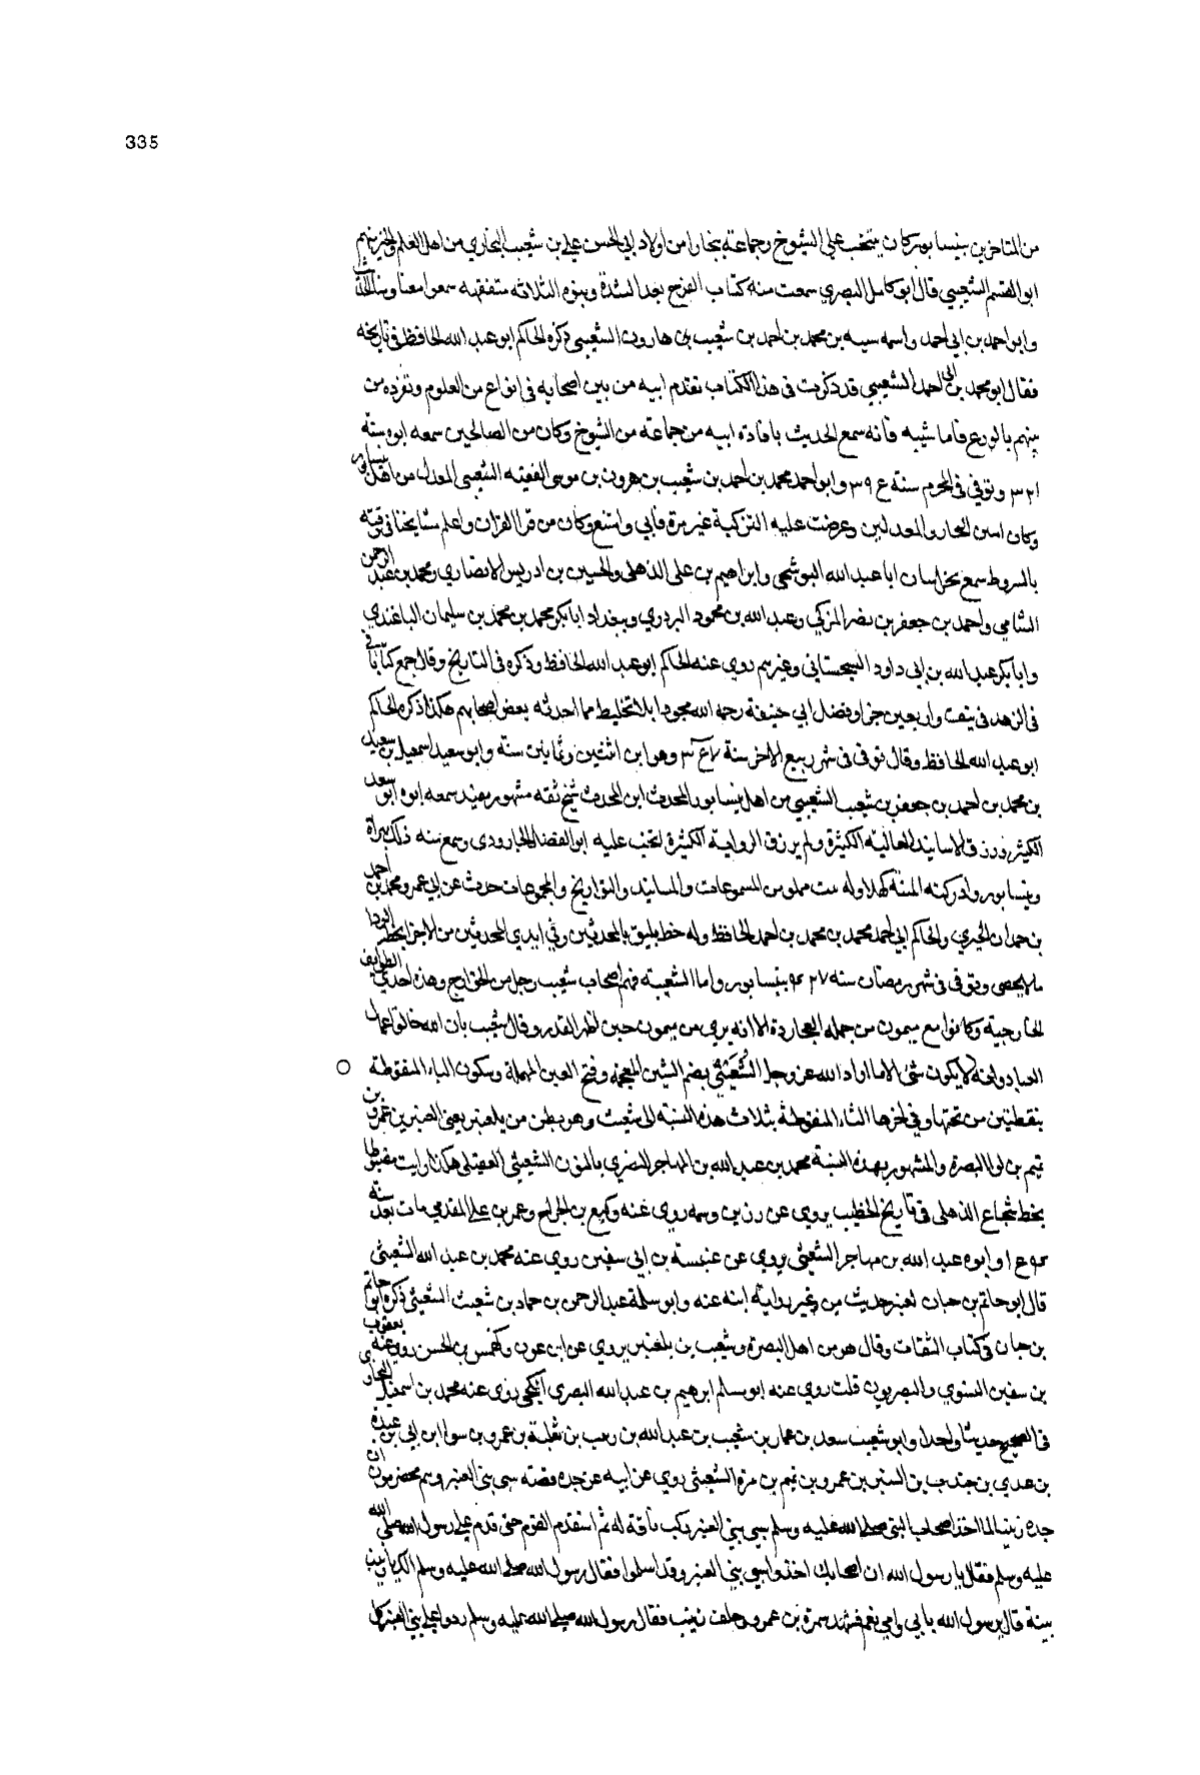 335
من المتاخرين بنيسابور كان ينتخب على الشيوخ وجماعة ببخارا من اولاد ابي الحسن علي بن شعيب البخاري من اهل العلم والخير منهم
ابو القسم الشعيبي قال ابو كامل البصري سمعت منه كتاب الفرج بعد الشدة وبنوه الثلاثه متفقهه سمعوا معنا
وابو احمد بن ابي احمد واسمه سيبه بن محمد بن احمد بن شعيب بن هارون الشعيبي ذكره الحاكم ابو عبد الله الحافظ في تاريخه
فقال ابو محمد بن ابي احمد الشعيبي قد ذكرت في هذا الكتاب تقدم ابيه من بين اصحابه في انواع من العلوم وتفرده من
بينهم بالورع فاما شيبه فانه سمع الحديث بافادة ابيه من جماعة من الشيوخ وكان من الصالحين سمعه ابوه سنة
وتوفي في المحرم سنة وابو احمد محمد بن احمد بن شعيب بن هرون بن موسى الفقيه الشعيبي المعدل من اهل نيسابور
وكان امين التجار والمعدلين وعرضت عليه التزكية غير مرة فابي وامتنع وكان من قرا القران واعلم مشايخنا في وقته
بالشروط سمع بخراسان ابا عبد الله البوشنجي وابراهيم بن علي الذهلي والحسين بن ادريس الانصاري ومحمد بن عبد الرحمن
الشامي واحمد بن جعفر بن نصر المزكي وعبد الله بن محمود البردوي وببغداد ابا بكر محمد بن محمد بن سليمان الباغندي
وابا بكر عبد الله بن ابي داود السجستاني وغيرهم روي عنه الحاكم ابو عبد الله الحافظ وذكره في التاريخ وقال جمع كتابا في
في الزهد في نيف واربعين جزا وفضل ابي حنيفة رحمه الله مجودا بلا تخليط مما احدثه بعض اصحابهم هكذا ذكره الحاكم
ابو عبد الله الحافظ وقال توفي في شهر ربيع الاخر سنة وهو ابن اثنتين وثمانين سنة وابو سعيد اسمعيل بن سعيد
بن محمد بن احمد بن جعفر بن شعيب الشعيبي من اهل نيسابور المحدث ابن المحدث شيخ ثقه مشهور مفيد سمعه ابوه ابو سعد
الكثير ورزق الاسانيد العاليه الكثيرة ولم يرزق الرواية الكثيرة انتخب عليه ابو الفضل الجارودي وسمع منه ذلك بهراة
ونيسابور وادركته المنية كهلا وله بيت مملو من المسموعات والمسانيد والتواريخ والمجموعات حدث عن ابي عمرو محمد بن احمد
بن حمدان الحيري والحاكم ابي احمد محمد بن محمد بن احمد الحافظ وله خط يليق بالمحدثين وفي ايدي المحدثين من الاجزا بخطه
ما لا يحصى وتوفي في شهر رمضان سنه ٤٢٧ بنيسابور واما الشعيبية فهم اصحاب شعيب رجل من الخوارج وهذه احدي الطوايف
الخارجية وكانوا مع ميمون من جمله العجاردة الا انه بري من ميمون حين اظهر القدر وقال شعيب بان الله خالق اعمال
العباد وانه لا يكون شئ الا ما اراد الله عز وجل الشعيثي بضم الشين المعجمه وفتح العين المهملة وسكون الياء المنقوطة
بنقطتين من تحتها وفي اخرها الثاء المنقوطة بثلاث هذه النسبة الى شعيث وهو بطن من بلعنبر يعني العنبر بن عمرو بن
تميم بن البصرة والمشهور بهذه النسبة محمد بن عبد الله بن المهاجر الشعيثي العقيلي هكذا رايت
بخط شجاع الذهلي في تاريخ الخطيب يروي عن روي عنه وكيع بن الجراح وعمر بن علي المقدمي مات بعد سنة
وابوه عبد الله بن مهاجر الشعيثي يروي عن عنبسة بن ابي سفين روي عنه محمد بن عبد الله الشعيثي
قال ابو حاتم بن حبان يعتبر حديثه من غير رواية ابنه عنه وابو سلمة عبد الرحمن بن حماد بن شعيث الشعيثي ذكره ابو حاتم
بن حبان في كتاب الثقات وقال هو من اهل البصرة وشعيث بن بلعنبر يروي عن ابن عون وكهمس بن الحسن روى عنه يعقوب
بن سفين الفسوي والبصريون قلت روي عنه ابو مسلم ابرهيم بن عبد الله البصري الكجي روى عنه محمد بن اسمعيل البخاري
في الصحيح حديثا واحدا وابو شعيث سعد بن عمار بن شعيث بن عبد الله بن زبيب بن ثعلبة بن عمرو بن سوا بن ابي بن عبدة
بن عدي بن جندب بن العنبر بن عمرو بن تميم بن مرة الشعيثي روي عن ابيه عن جده قصة سبي بني العنبر وهم مخضرمون ان
جده زبيبا لما اخذ اصحاب النبي صلى الله عليه وسلم سبي بني العنبر ركب ناقة له ثم استقدم القوم حتى قدم علي رسول الله صلى الله
عليه وسلم فقال يا رسول الله ان اصحابك اخذوا سبي بني العنبر وقد اسلموا فقال رسول الله صلى الله عليه وسلم الك يا زبيب
بينة قال يرسول الله بابي وامي نعم فشهد سمرة بن عمرو وحلف زبيب فقال رسول الله صلى الله عليه وسلم ردوا علي بني العنبر كل